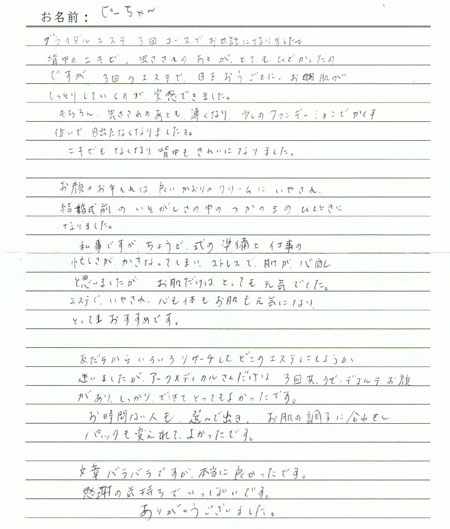 お名前： ぴーちゃん
ブライダルエステ 3回コースでお世話になりました。
背中のニキビ、虫さされのあとが、とてもひどかったの
ですが、3回のエステで、日をおうごとに、お肌が
しっとりしていくのが、実感できました。
もちろん、虫さされのあとも、薄くなり、少しのファンデーションでかくす
位いで 目立たなくなりました。
ニキビも なくなり 背中も きれいになりました。
お顔のお手入れは、良いかおりのクリームに いやされ、
結婚式前 の いそがしさの中の つかのまの ひとときに
なりました。
私事ですが、ちょうど、式の 準備と 仕事の
忙しさが、かさなってしまい、ストレスで、肌が、心配
と思いましたが お肌だけは とっても 元気でした。
エステで、いやされ、心も体も お肌も 元気になり、
とっても おすすめです。
友だちから いろいろリサーチして どこのエステにしようか
迷いましたが、アークメディカルさんだけは 3回共、うで、デコルテ お顔
があり、しっかり、できて とってもよかったです。
お時間ない人も、選んで出き、 お肌の調子に合わせ
パックも変えれて、よかったです。
文章 バラバラですが、本当に 良かったです。
感謝の気持ちで いっぱいです。
ありがとうございました。